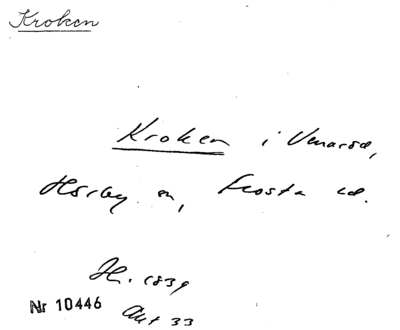 Kroken
Kroken i
Hörby sn, Frosta hd.
H. 1839
Nr 10446
Akt 33